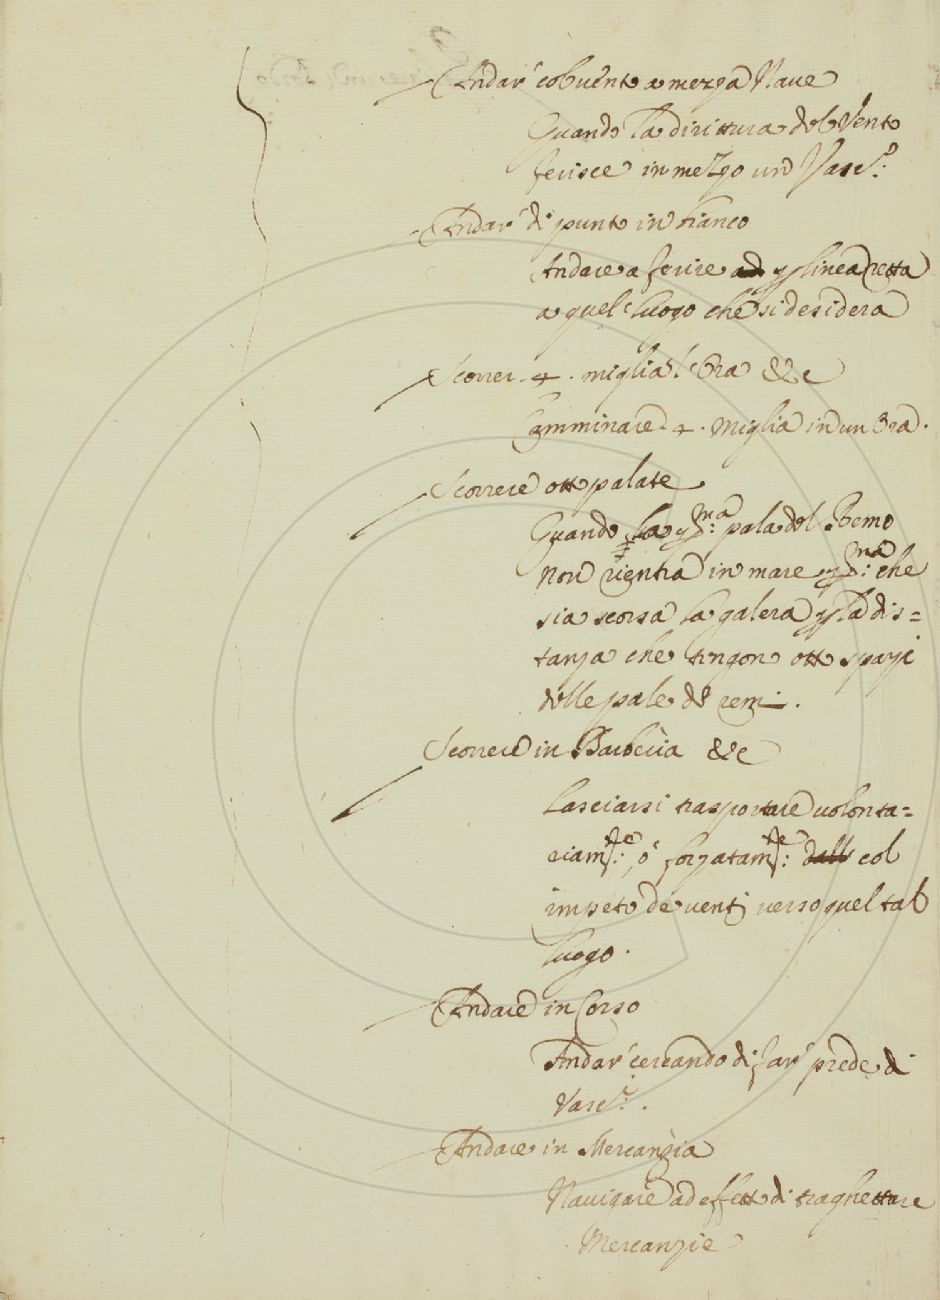 Andar' col vento a mezza Naue
Quando la dirittura del Vento
ferisce in mezzo un Vasc:lo
Andar di punto in fianco
Andare a ferire ad p linea retta
a quel luogo che si desidera
Scorrer. 4. miglia l'Ora &c
Camminare. 4. Miglia in un Ora.
Scorrere otto palate
Quando la p:ma pala del Remo
non rientra in mare p:ma che
sia scorsa la galera p la dis=
tanza che tengono otto spazi
delle pale de remi.
Scorrere in Barberia &c
Lasciarsi trasportare volonta=
riam:te, ò forzatam:te dall col
impeto de venti verso quel tal
luogo.
Andare in Corso
Andar' cercando di far' prede di
Vasc:li.
Andare in Mercanzia
Nauigare ad effetto di traghettare
Mercanzie